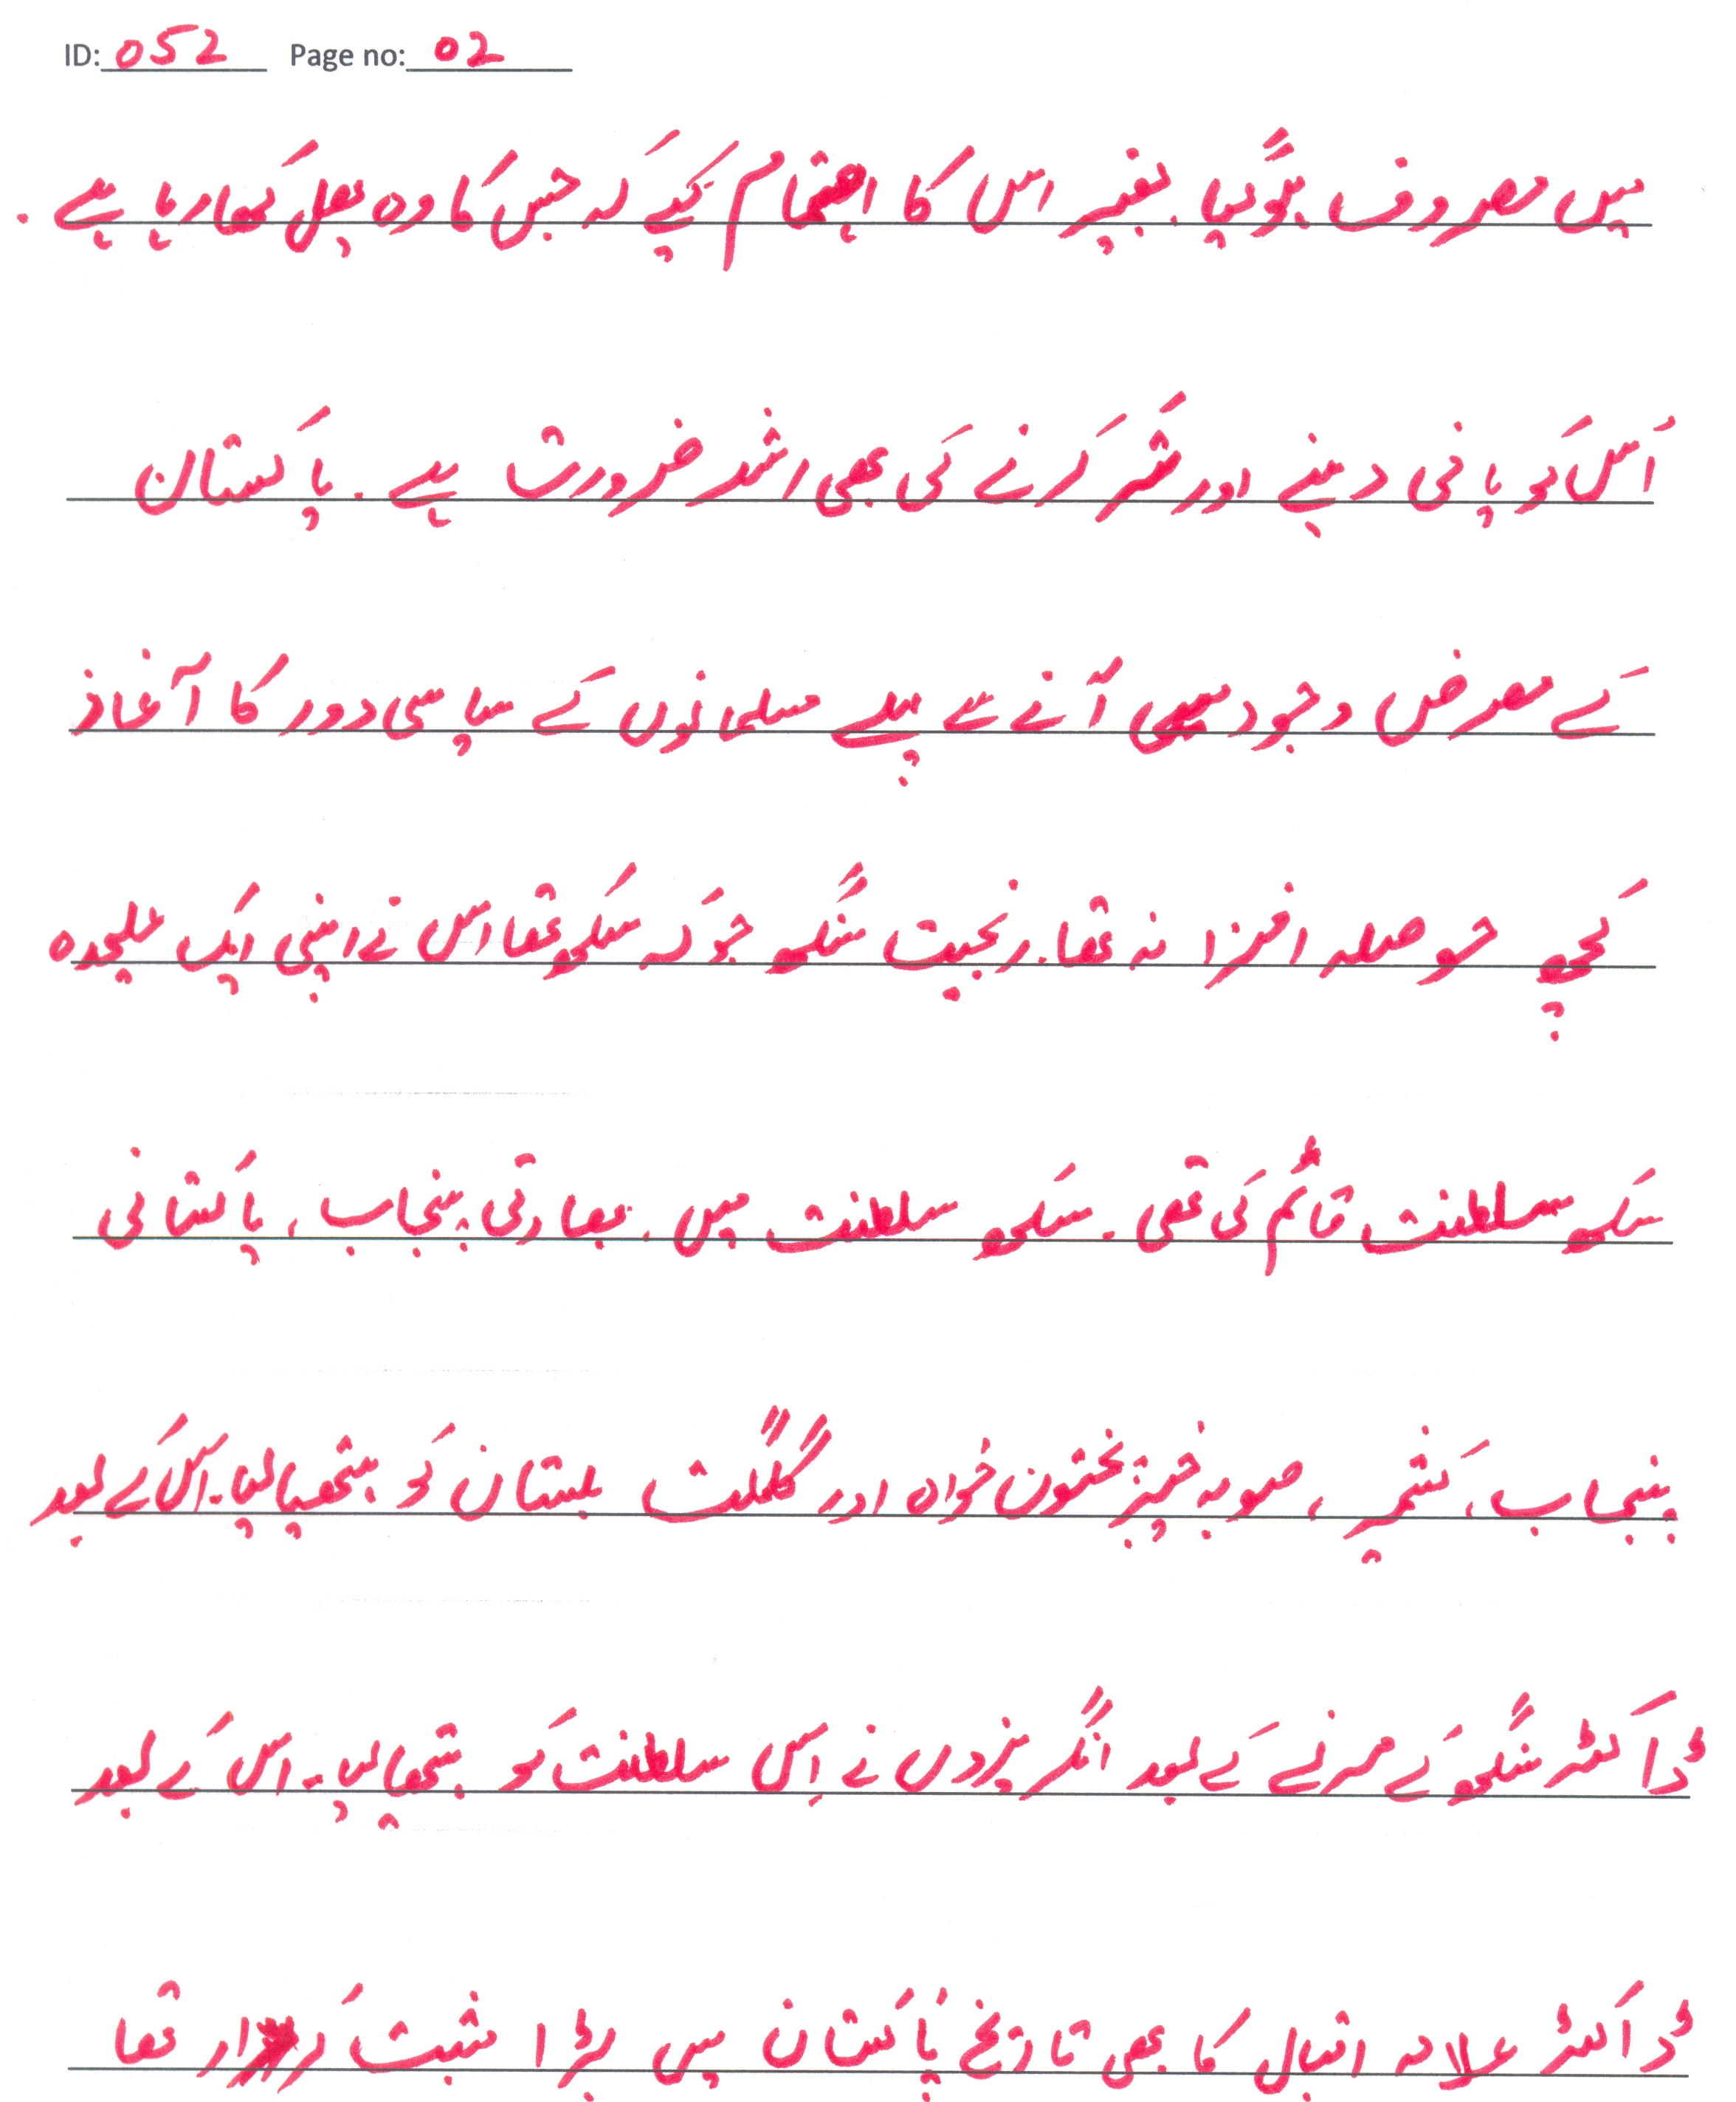 ID: 052 Page no: 02
میں مصروف ہوگیا۔ بغیر اس کا اہتمام کیے کہ جس کا وہ پھل کھا رہا ہے۔
اُس کو پانی دینے اور شکر کرنے کی بھی اشد ضرورت ہے۔ پاکستان
کے معرض وجود میں آنے سے پہلے مسلمانوں کے سیاسی دور کا آغاز
کچھ حوصلہ افزا نہ تھا۔ رنجیت سنگھ جو کہ سکھ تھا اس نے اپنی ایک علیحدہ
سکھ سلطنت قائم کی تھی۔ سکھ سلطنت میں، بھارتی پنجاب، پاکستانی
پنجاب، کشمیر، صوبہ خیبرپختون خواہ اور گلگت بلتستان کو ہتھیا لیا۔ اس کے بعد
ڈاکٹر سنگھ کے مرنے کے بعد انگریزوں نے اِس سلطنت کو ہتھیا لیا۔ اس کے بعد
ڈاکٹر علامہ اقبال کا بھی تاریخ پاکستان میں بڑا مثبت کردار تھا